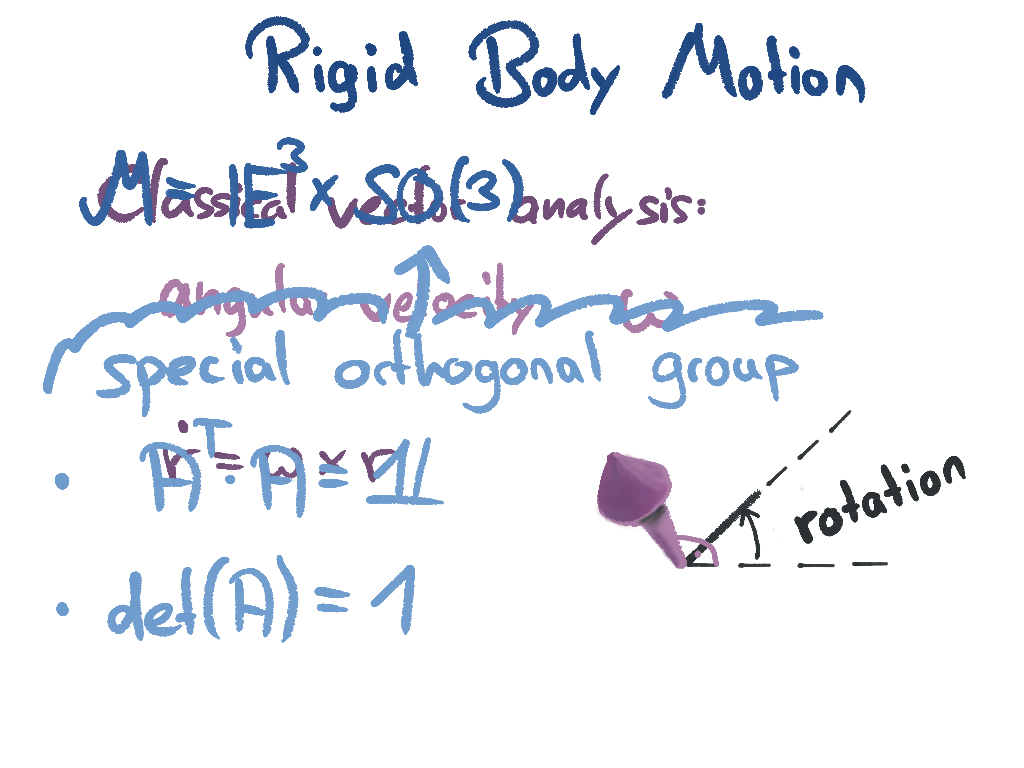 Rigid Body Motion
M = E³ × SO(3)
Classical vector analysis:
angular velocity ω
special orthogonal group
ṙ = ω × r
• Aᵀ · A = 1
• det(A) = 1
rotation